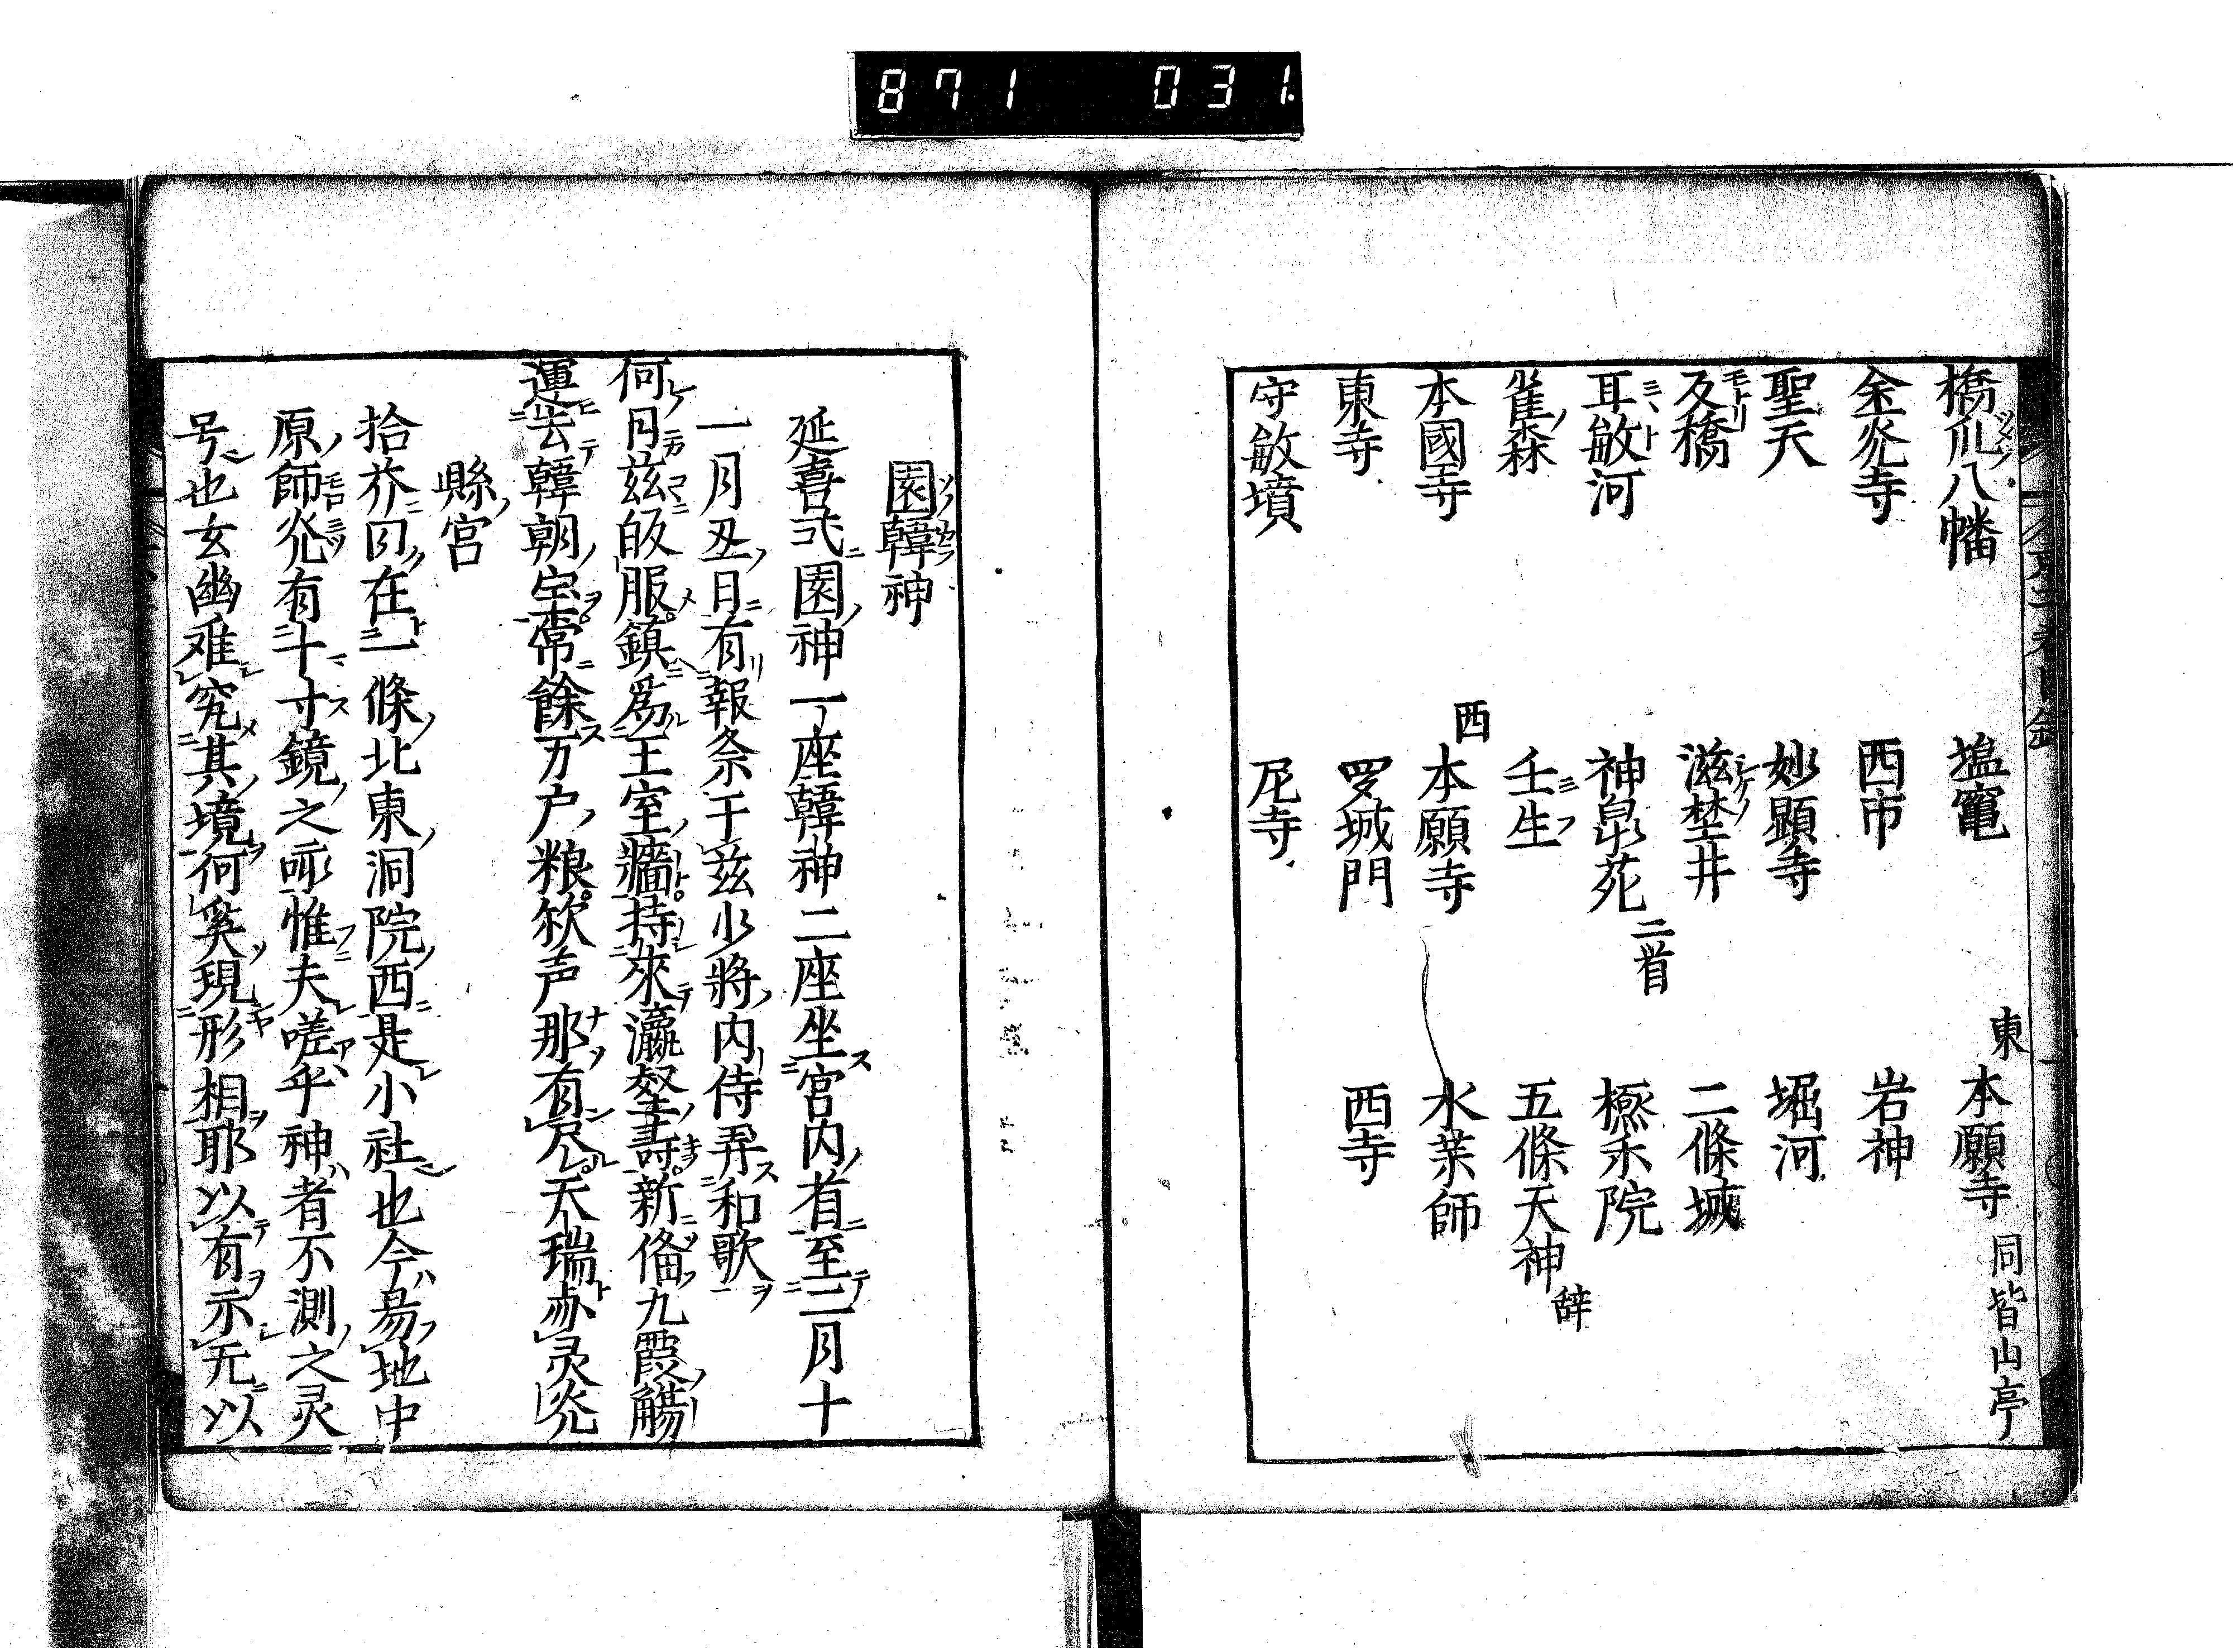 871 031
橋爪八幡 塩竈 東本願寺 同皆山亭
金光寺 西市 岩神
聖天 妙顕寺 堀河
反橋 滋埜井 二條城
耳敏河 神泉苑二首 院
雀森 壬生 五條天神辞
本國寺 西本願寺 水薬師
東寺 罗城門 西寺
守敏墳 尼寺
園韓神
延喜式園神一座韓神二座坐宮内省至二月十
一月丑日有報祭于兹少將内侍弄和歌
何日兹皈服鎮為王室牆持來瀛壑壽新俻九霞觴
運去韓朝宝常餘万户粮欤声那有尽天瑞亦灵光
縣宮
拾芥曰在一條北東洞院西是小社也今易地中
原師光有十寸鏡之哥惟夫嗟乎神者不測之灵
号也玄幽难究其境何奚現形相耶以有示无以